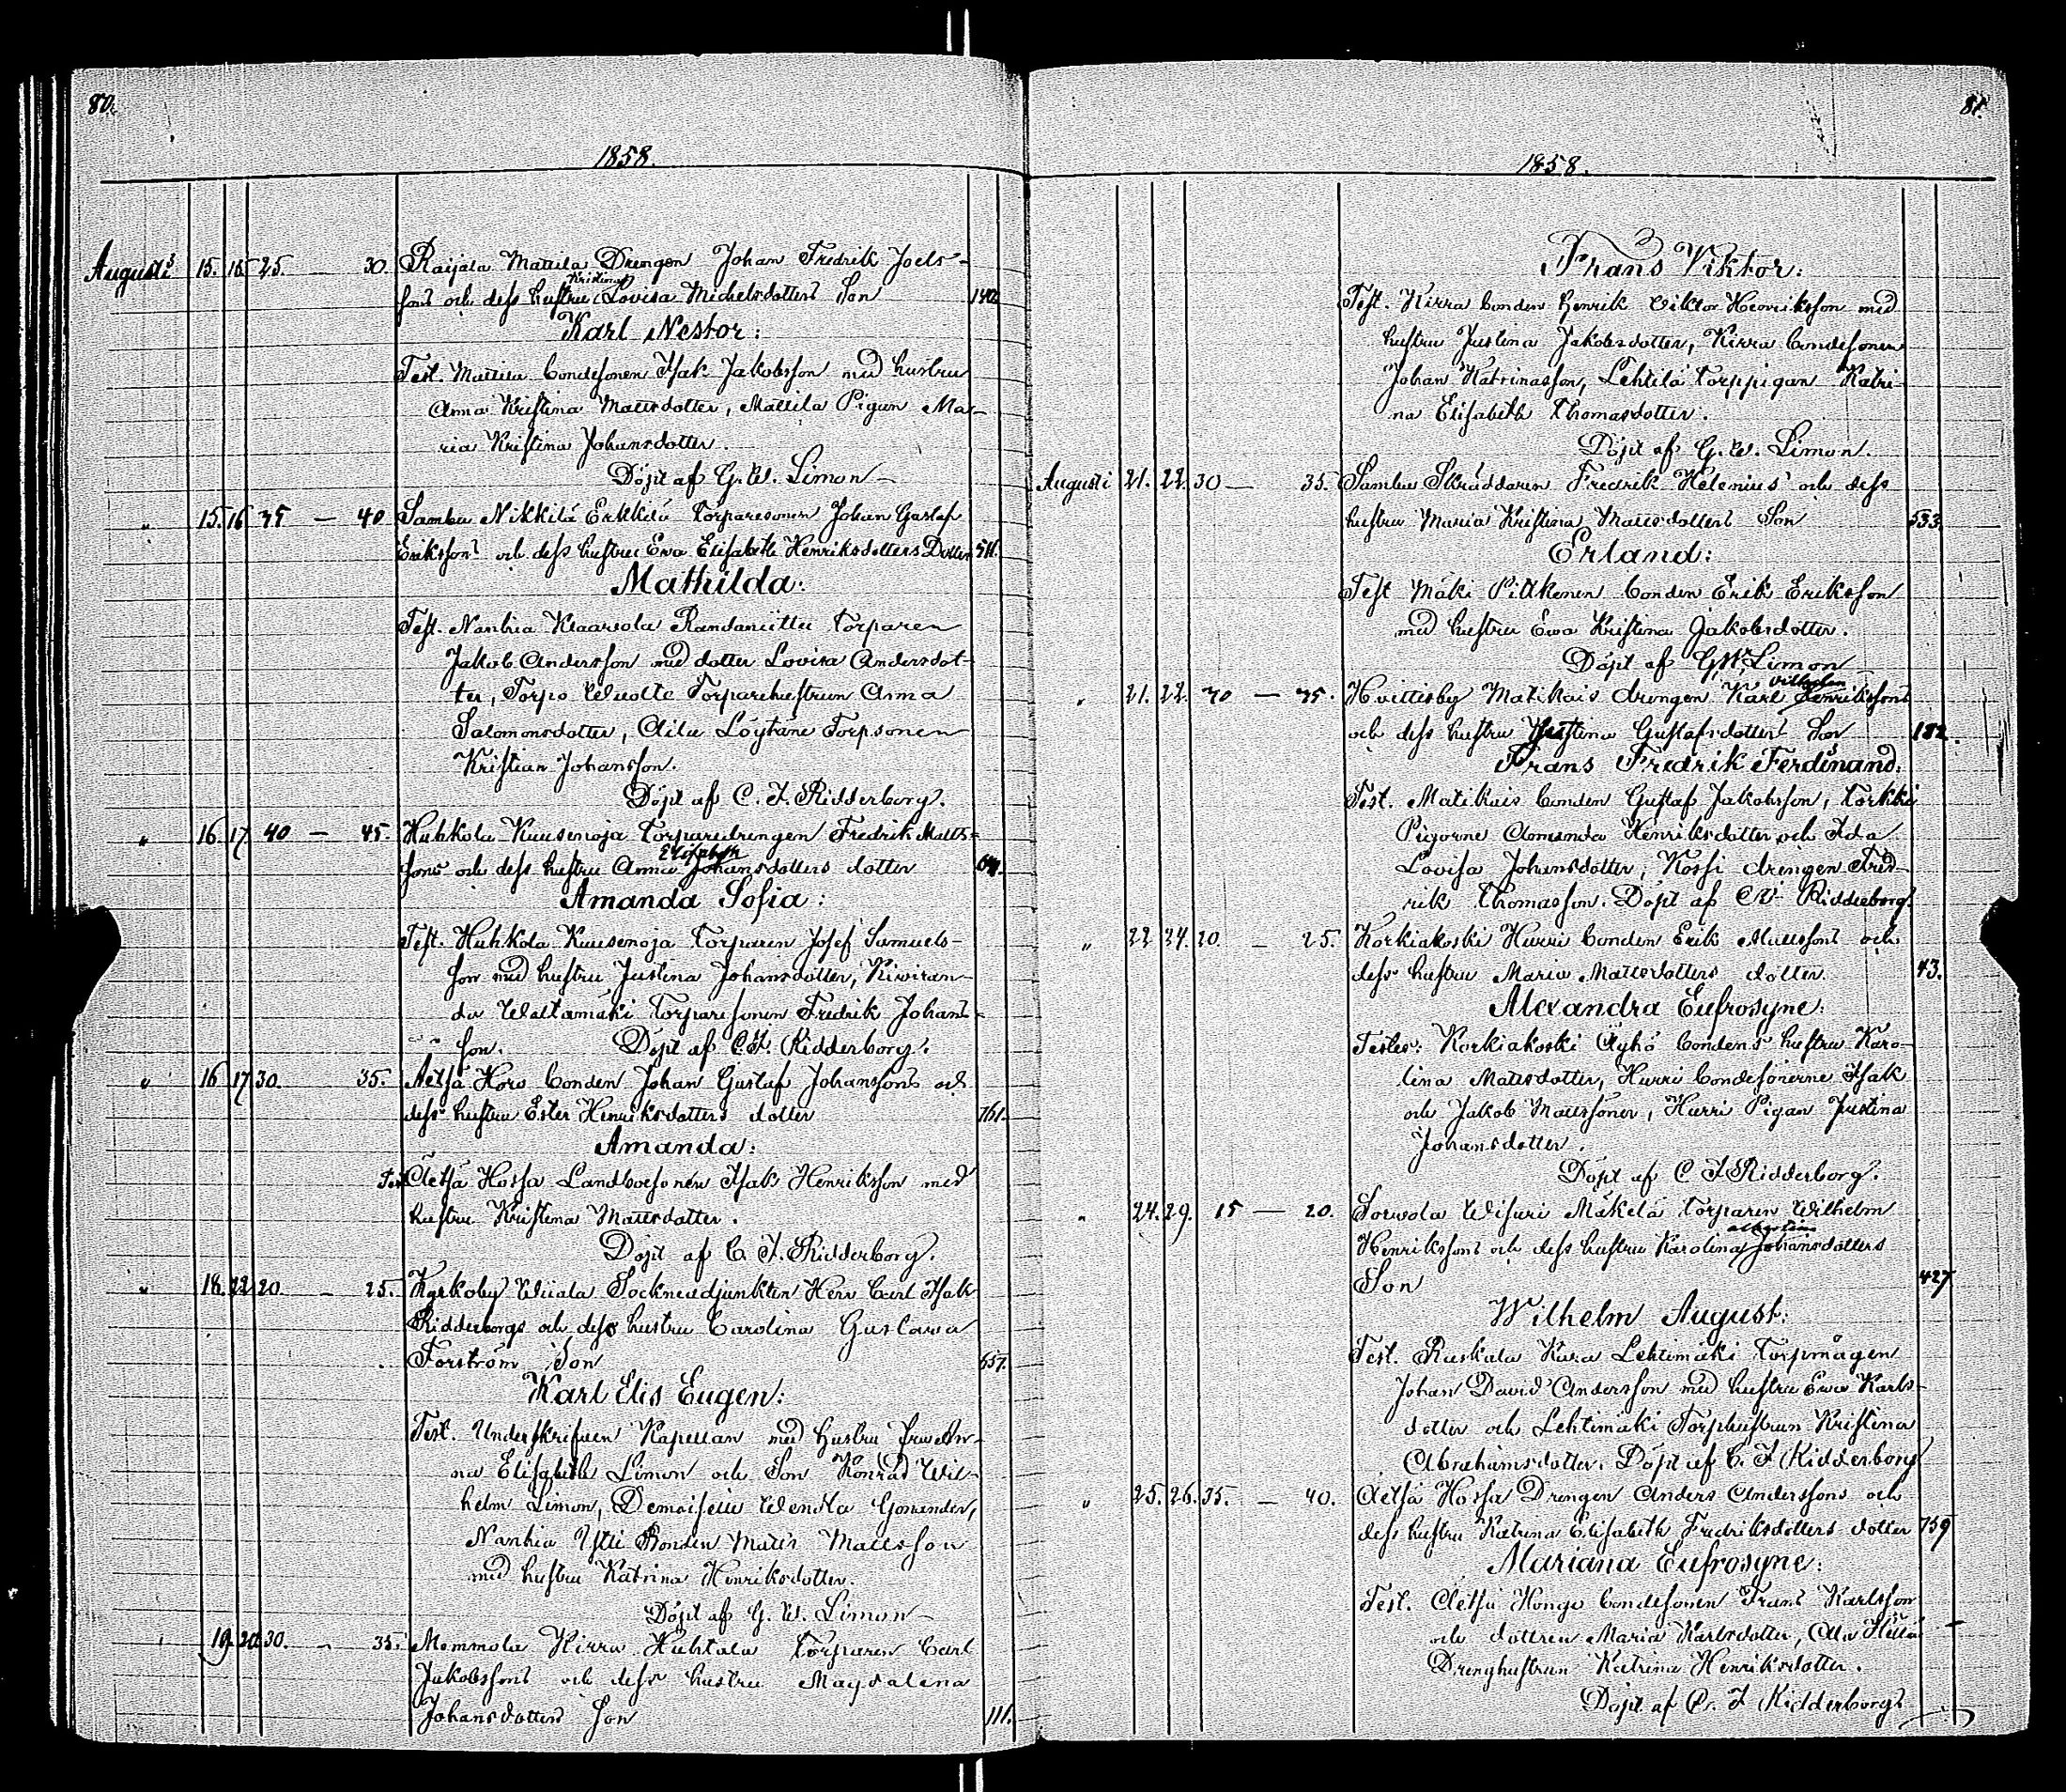 80.
1858.
Augusti 15. 16. 25. — 30. Raijala Mattila Drengen Johan Fredrik Joels-
Kristina
sons och dess hustru Lovisa Michelsdotters Son 140
Karl Nestor:
Test. Mattila bondesonen Isak Jakobsson med hustru
Anna Kristina Mattsdotter, Mattila Pigan Ma-
ria Kristina Johansdotter.
Döpt af G. W. Limon
" 15. 16 35 — 40 Sambu Nikkilä Erkkilä Torparesonen Johan Gustaf
Erikssons och dess hustru Ewa Elisabeth Henriksdotters Dotter 511.
Mathilda:
Test. Nanhia Klaarola Randaniittu Torparen
Jakob Andersson med dotter Lovisa Andersdot-
ter, Torpo Wuolte Torparehustrun Anna
Salomonsdotter, Ailu Löytäne Torpsonen
Kristian Johansson.
Döpt af C. I. Ridderborg.
" 16. 17. 40 — 45. Huhkola Kuusenoja Torparedrengen Fredrik Matts-
Elisabeth
sons och dess hustru Anna Johansdotters dotter
Amanda Sofia:
Test. Huhkola Kuusenoja Torparen Josef Samuels-
son med hustru Justina Johansdotter, Kiviran-
da Waltamäki Torparesonen Fredrik Johans-
son. Döpt af C. I. Ridderborg.
" 16 17 30. 35. Aetsä Horo bonden Johan Gustaf Johanssons och
dess hustru Ester Henriksdotters dotter 761.
Amanda:
Test. Aetsä Hossa Landboesonen Isak Henriksson med
hustru Kristina Mattsdotter.
Döpt af C. I. Ridderborg.
" 18. 22 20. — 25. Kyrkoby Wiiala Socknedjunkten Herr Carl Isak
Ridderborgs och dess hustru Carolina Gustava
Forström Son 657.
Karl Elis Eugen:
Test. Underskrifven Kapellan med Hustru Fru An-
na Elisabeth Limon och Son Konrad Wil-
helm Limon, Demoiselle Wendla
Nanhia Ylli Bonden Matts Mattsson
med hustru Katrina Henriksdotter.
Döpt af G. W. Limon
" 19. 20. 30. — 35. Mommola Kirra Huhtala Torparen Carl
Jakobssons och dess hustru Magdalena
Johansdotters Son 111.
81.
1858.
Frans Viktor:
Test. Kirra bonden Henrik Viktor Henriksson med
hustru Justina Jakobsdotter, Kirra bondesonen
Johan Katrinasson, Lehtilä torppigan Katri-
na Elisabeth Thomasdotter.
Döpt af G. W. Limon.
Augusti 21. 22. 30 — 35. Sambu Skräddaren Fredrik Helenius' och dess
hustru Maria Kristina Mattsdotters Son 533
Erland:
Test Mäki Piltkenen bonden Erik Eriksson
med hustru Ewa Kristina Jakobsdotter.
Döpt af G. W. Limon
Vilhelm
" 21. 22. 30 — 35. Hvittisby Matikais drengen Karl Henrikssons
och dess hustru Justina Gustafsdotters Son 182.
Frans Fredrik Ferdinand.
Test. Matikais bonden Gustaf Jakobsson, Torkki
Pigorne Amanda Henriksdotter och Ida
Lovisa Johansdotter, Kossi drengen Fred-
rik Thomasson. Döpt af C. I. Ridderborg.
" 22 24. 20 — 25. Korkiakoski Hurri bonden Erik Mattssons och
dess hustru Maria Mattsdotters dotter. 43.
Alexandra Eufrosyne:
Testes: Korkiakoski Äyhö bondens hustru Karo-
lina Mattsdotter, Hurri bondesönerne Isak
och Jakob Mattssöner, Hurri Pigan Justina
Johansdotter.
Döpt af C I Ridderborg.
" 24. 29. 15 — 20. Sorvola Wisuri Mäkelä torparen Wilhelm
albertina
Henrikssons och dess hustru Karolina Johansdotters
Son 427
Wilhelm August:
Test. Raskala Kara Lehtimäki Torpmågen
Johan David Andersson med hustru Ewa Karls-
dotter och Lehtimäki Torphustrun Kristina
Abrahamsdotter. Döpt af C. I Ridderborg
" 25. 26. 35. — 40. Aetsä Hossa Drengen Anders Anderssons och
dess hustru Katrina Elisabeth Fredriksdotters dotter 759
Mariana Eufrosyne:
Test. Aetsä Honge bondesonen Frans Karlsson
och dottren Maria Karlsdotter,
Drenghustrun Katrina Henriksdotter.
Döpt af C. I Ridderborg